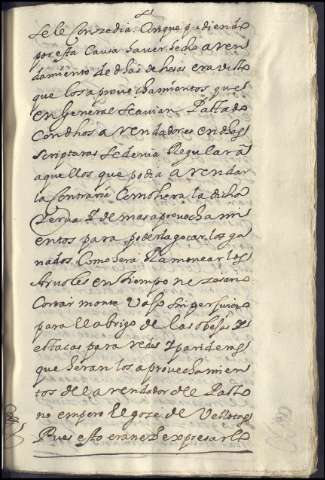 se le Conzedia: Conque pudiendo
por esta Causa haver hecho arren
damiento de dhas dehesas era visto
que los aprovechamientos que
en General se avian Pactado
Con dhos arrendadores en dhas
scripturas se devia Regular a
aquellos que podia arrendar
la Contraria Como hera la dicha
Yerva Y demas aprovechami
entos para poderla gozar los ga
nados. Como sera Ramonear los
Arvoles en tiempo nezesario
Cortar monte vajo sin perjuicio
para el abrigo de las obejas Y
estacas para redes Y parideras
que heran los aprovechamien
tos del arrendador del Pasto
no empero el goze de Vellota
Pues esto era nezº expresarlo